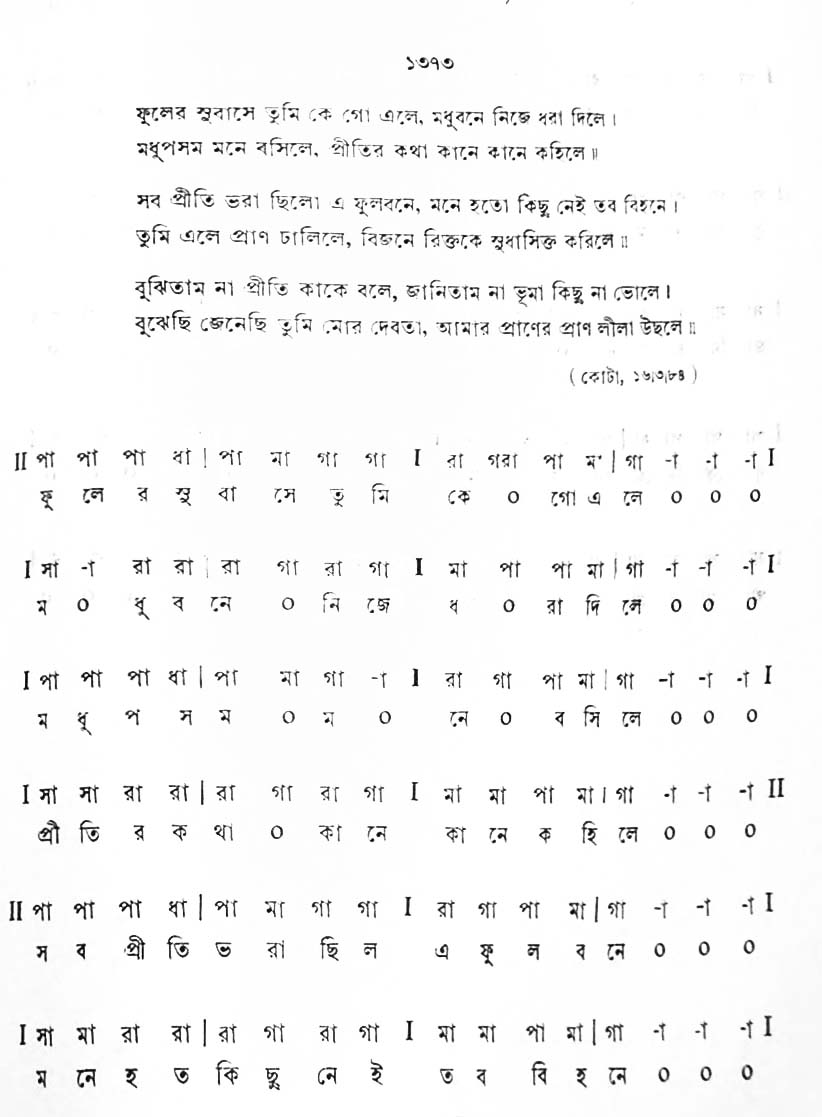 ১৩৭৩
ফুলের সুবাসে তুমি কে গো এলে, মধুবনে নিজে ধরা দিলে।
মধুপসম মনে বসিলে, প্রীতির কথা কানে কানে কহিলে॥
সব প্রীতি ভরা ছিলো এ ফুলবনে, মনে হতো কিছু নেই তব বিহনে।
তুমি এলে প্রাণ ঢালিলে, বিজনে রিক্তকে সুধাসিক্ত করিলে॥
বুঝিতাম না প্রীতি কাকে বলে, জানিতাম না ভূমা কিছু না ভোলে।
বুঝেছি জেনেছি তুমি মোর দেবতা, আমার প্রাণের প্রাণ লীলা উছলে॥
( কোটা, ১৬।৩।৮৪ )
II পা পা পা ধা | পা মা গা গা I রা গরা পা মা | গা -া -া -া I
ফু লে র সু বা সে তু মি কে ০ গো এ লে ০ ০ ০
I সা -া রা রা | রা গা রা গা I মা পা পা মা | গা -া -া -া I
ম ০ ধু ব নে ০ নি জে ধ ০ রা দি লে ০ ০ ০
I পা পা পা ধা | পা মা গা -া I রা গা পা মা | গা -া -া -া I
ম ধু প স ম ০ ম ০ নে ০ ব সি লে ০ ০ ০
I সা সা রা রা | রা গা রা গা I মা মা পা মা | গা -া -া -া II
প্রী তি র ক থা ০ কা নে কা নে ক হি লে ০ ০ ০
II পা পা পা ধা | পা মা গা গা I রা গা পা মা | গা -া -া -া I
স ব প্রী তি ভ রা ছি ল এ ফু ল ব নে ০ ০ ০
I সা মা রা রা | রা গা রা গা I মা মা পা মা | গা -া -া -া I
ম নে হ ত কি ছু নে ই ত ব বি হ নে ০ ০ ০